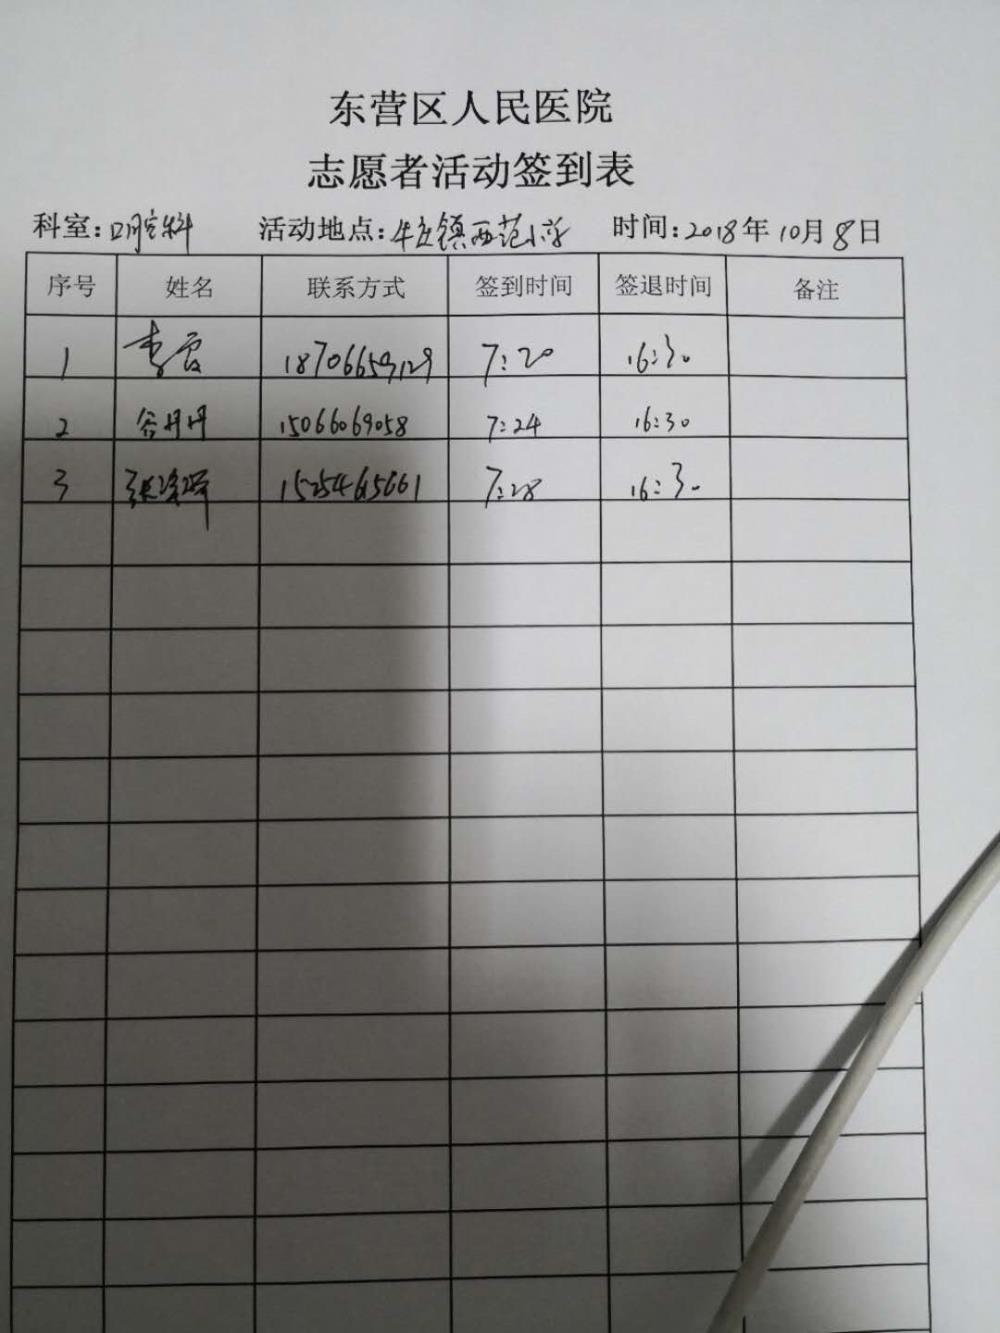 东营区人民医院
志愿者活动签到表
科室:口腔科 活动地点:牛庄镇西范小学 时间:2018年10月8日
序号 姓名 联系方式 签到时间 签退时间 备注
1 李霞 18706659129 7:20 16:30
2 谷丹丹 15066069058 7:24 16:30
3 张 7:28 16:30